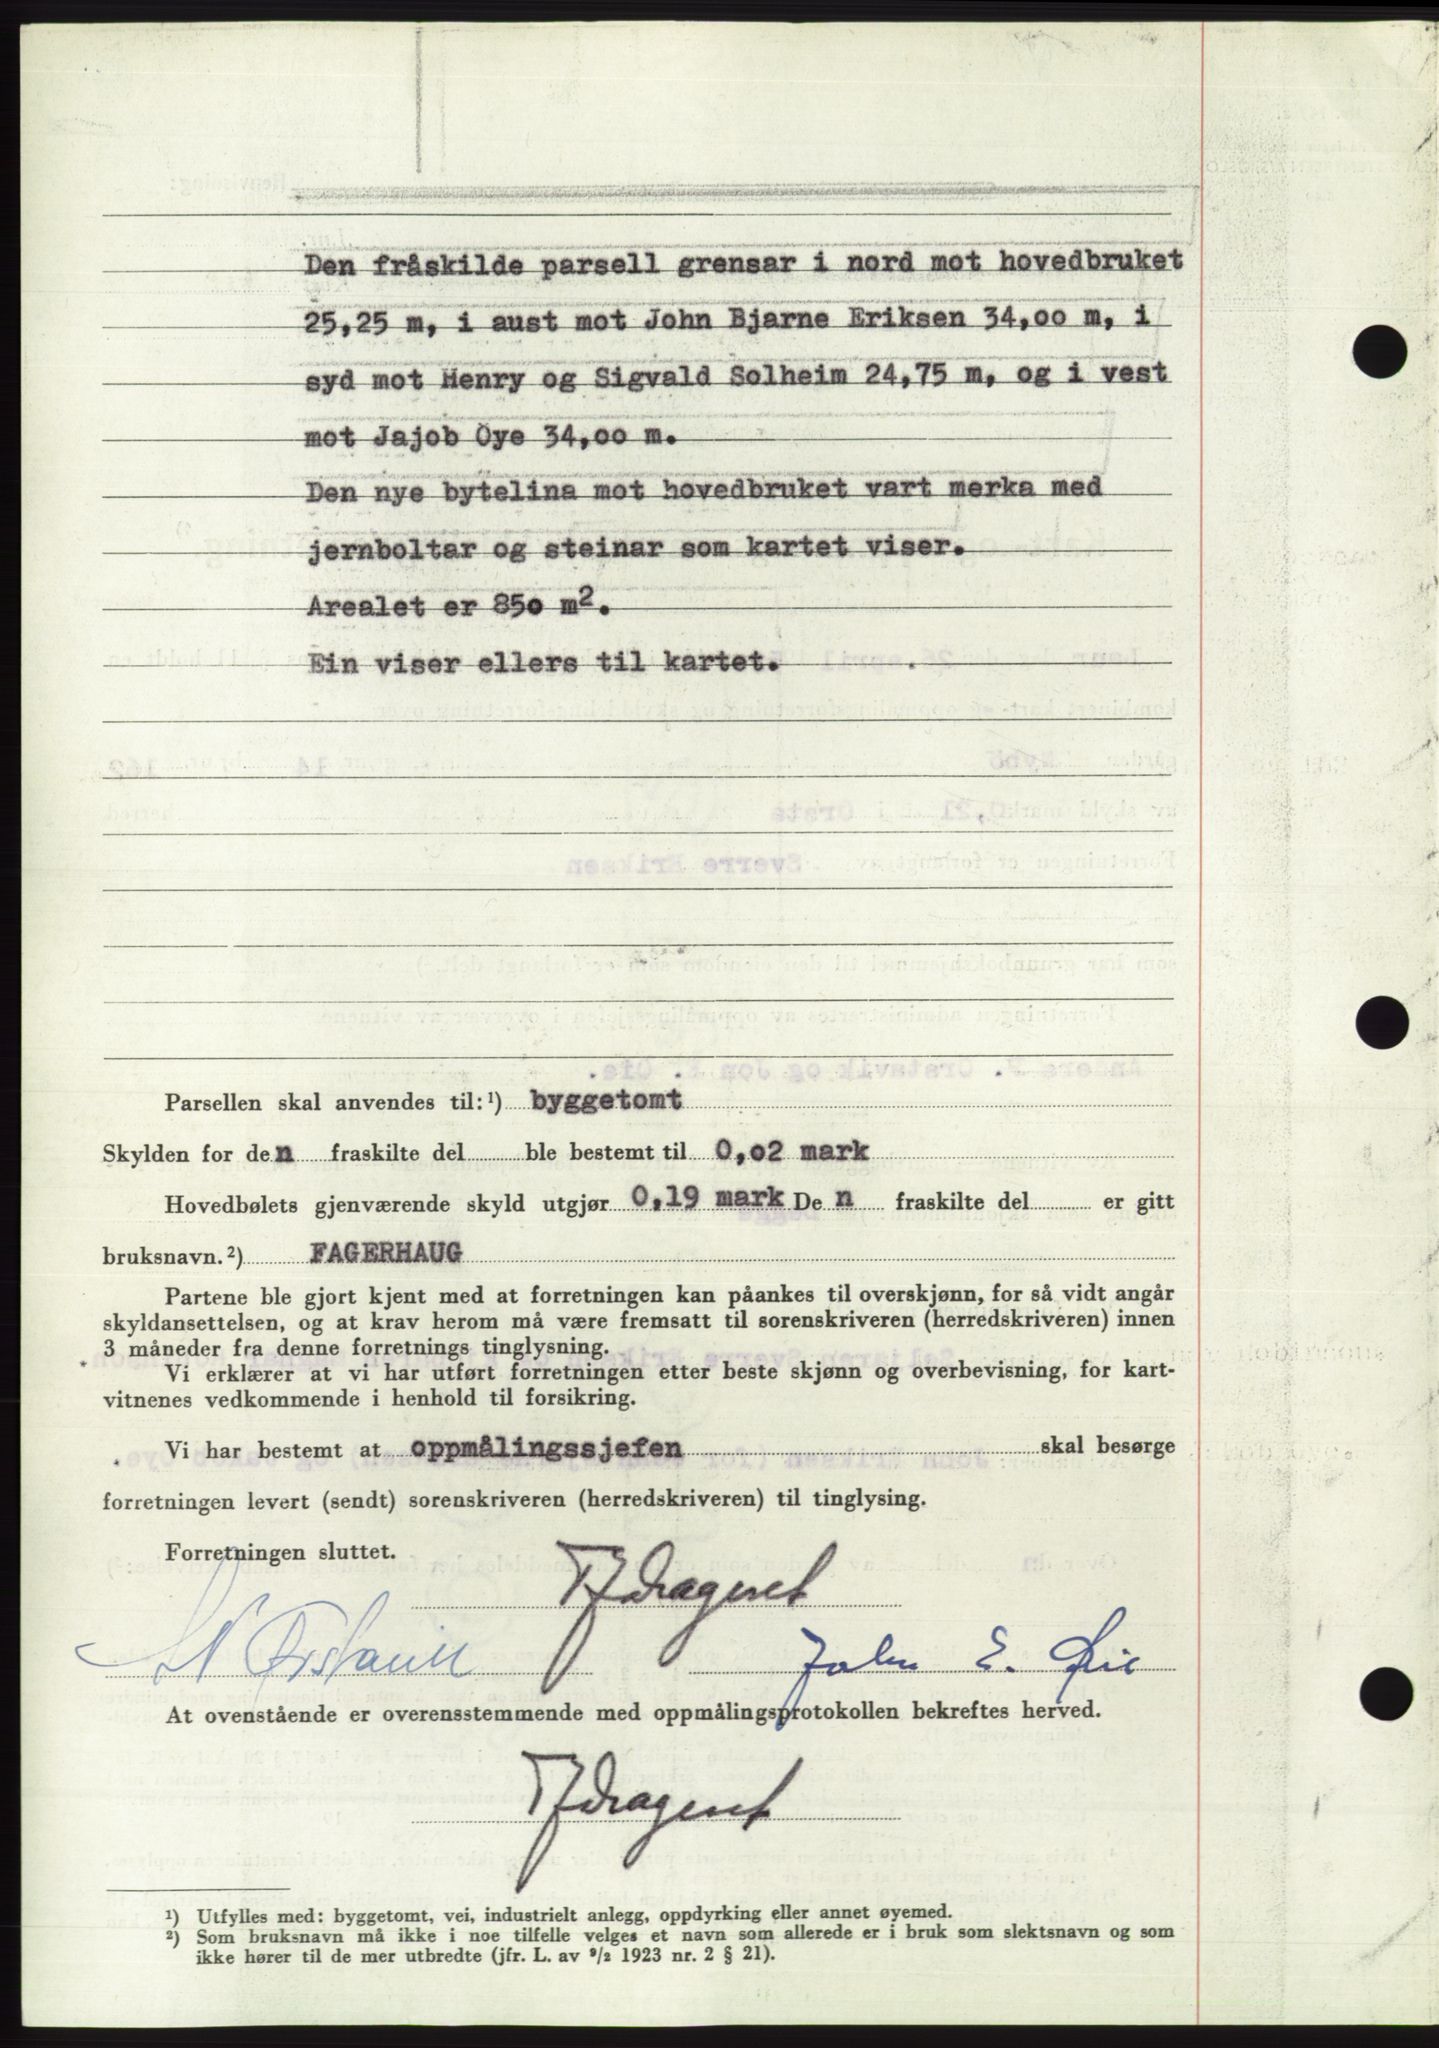 Den fråskilde parsell grensar i nord mot hovedbruket
25,25 m, i aust mot John Bjarne Eriksen 34,00 m, i
syd mot Henry og Sigvald Solheim 24,75 m, og i vest
mot Jajob Oye 34,00 m.
Den nye bytelina mot hovedbruket vart merka med
jernboltar og steinar som kartet viser.
Arealet er 850 m².
Ein viser ellers til kartet.
Parsellen skal anvendes til: ¹) byggetomt
Skylden for den fraskilte del ble bestemt til 0,02 mark
Hovedbølets gjenværende skyld utgjør 0,19 mark Den fraskilte del er gitt
bruksnavn. ²) FAGERHAUG
Partene ble gjort kjent med at forretningen kan påankes til overskjønn, for så vidt angår
skyldansettelsen, og at krav herom må være fremsatt til sorenskriveren (herredskriveren) innen
3 måneder fra denne forretnings tinglysning.
Vi erklærer at vi har utført forretningen etter beste skjønn og overbevisning, for kart-
vitnenes vedkommende i henhold til forsikring.
Vi har bestemt at oppmålingssjefen skal besørge
forretningen levert (sendt) sorenskriveren (herredskriveren) til tinglysing.
Forretningen sluttet.
John E. Øie
At ovenstående er overensstemmende med oppmålingsprotokollen bekreftes herved.
¹) Utfylles med: byggetomt, vei, industrielt anlegg, oppdyrking eller annet øyemed.
²) Som bruksnavn må ikke i noe tilfelle velges et navn som allerede er i bruk som slektsnavn og som
ikke hører til de mer utbredte (jfr. L. av ⁹/₂ 1923 nr. 2 § 21).